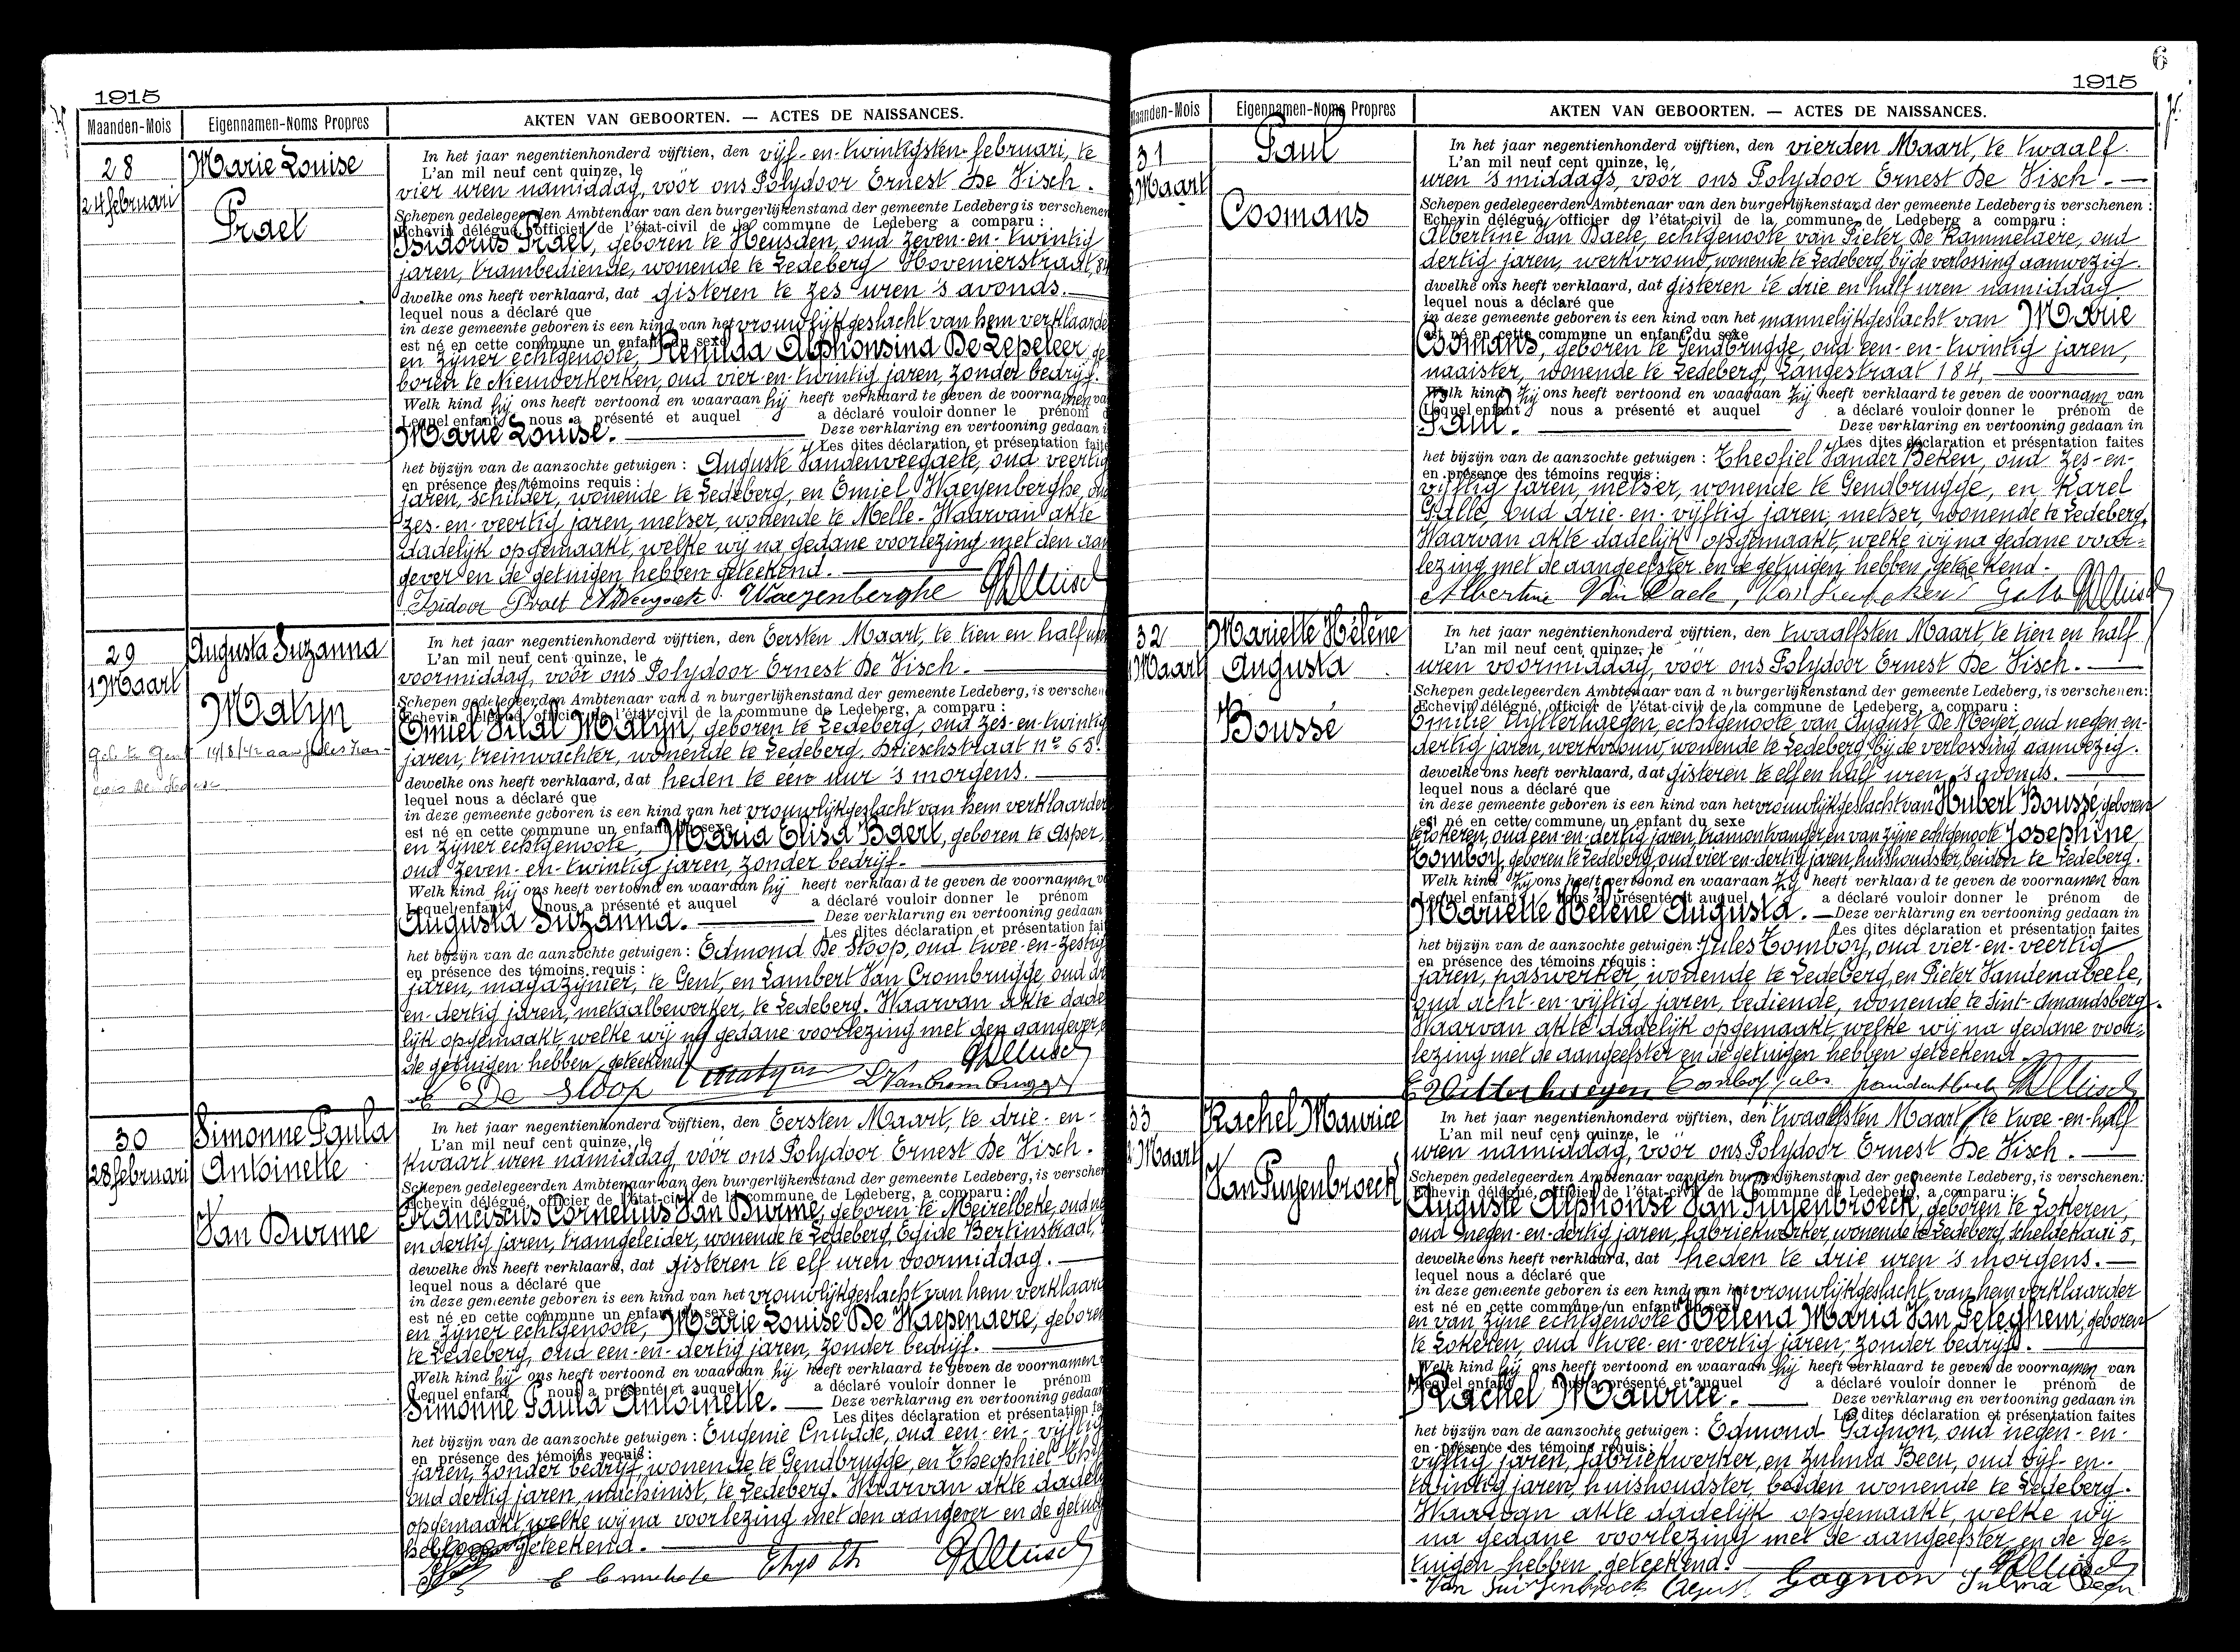 1915
Maanden-Mois Eigennamen-Noms Propres AKTEN VAN GEBOORTEN. — ACTES DE NAISSANCES.
28 Marie Louise
24 februari
Praet
In het jaar negentienhonderd vijftien, den vijf-en-twintigsten februari, te
L'an mil neuf cent quinze, le
vier uren namiddag, voor ons Polydoor Ernest De Visch.
Schepen gedelegeerden Ambtenaar van den burgerlijkenstand der gemeente Ledeberg is verschenen
Echevin délégué, officier de l'état-civil de la commune de Ledeberg a comparu :
Isidorus Praet, geboren te Heusden, oud zeven-en-twintig
jaren, trambediende, wonende te Ledeberg Hovenierstraat, 84
dwelke ons heeft verklaard, dat gisteren te zes uren 's avonds.
lequel nous a déclaré que
in deze gemeente geboren is een kind van het vrouwlijkgeslacht van hem verklaarder
est né en cette commune un enfant du sexe
en zijner echtgenoote, Renilda Alphonsina De Lepeleer, ge
boren te Nieuwerkerken, oud vier-en-twintig jaren, zonder bedrijf.
Welk kind hij ons heeft vertoond en waaraan hij heeft verklaard te geven de voornamen va
Lequel enfant nous a présenté et auquel a déclaré vouloir donner le prénom d
Marie Louise. Deze verklaring en vertooning gedaan i
Les dites déclaration, et présentation faite
het bijzijn van de aanzochte getuigen : Auguste Vandenveegaete, oud veertig
en présence des témoins requis :
jaren, schilder, wonende te Ledeberg, en Emiel Waeyenberghe, oud
zes-en-veertig jaren, metser, wonende te Melle. Waarvan akte
dadelijk opgemaakt, welke wij na gedane voorlezing met den aan
gever en de getuigen hebben geteekend.
Isidoor Praet Waeyenberghe
29 Augusta Suzanna
1 Maart
Malyn
In het jaar negentienhonderd vijftien, den Eersten Maart, te tien en half uren
L'an mil neuf cent quinze, le
voormiddag, vóór ons Polydoor Ernest De Visch.
Schepen gedelegeerden Ambtenaar van d n burgerlijkenstand der gemeente Ledeberg, is verschen
Echevin délégué, officier de l'état-civil de la commune de Ledeberg, a comparu :
Emiel Vital Malyn, geboren te Ledeberg, oud zes-en-twintig
jaren, treinwachter, wonende te Ledeberg, Drieschstraat nº 65.
dewelke ons heeft verklaard, dat heden te één uur 's morgens.
lequel nous a déclaré que
in deze gemeente geboren is een kind van het vrouwlijkgeslacht van hem verklaarder
est né en cette commune un enfant du sexe
en zijner echtgenoote, Maria Elisa Baert, geboren te Asper,
oud zeven-en-twintig jaren, zonder bedrijf.
Welk kind hij ons heeft vertoond en waaraan hij heeft verklaard te geven de voornamen v
Lequel enfant nous a présenté et auquel a déclaré vouloir donner le prénom
Augusta Suzanna. Deze verklaring en vertooning gedaan
Les dites déclaration et présentation fait
het bijzijn van de aanzochte getuigen : Edmond De Stoop, oud twee-en-zestig
en présence des témoins requis :
jaren, magazijnier, te Gent, en Lambert Van Crombrugge, oud
en-dertig jaren, metaalbewerker, te Ledeberg. Waarvan akte dade
lijk opgemaakt, welke wij na gedane voorlezing met den aangever,
de getuigen hebben geteekend.
De Stoop Malyn L Van Crombrugge
30 Simonne Paula
28 februari Antoinette
Van Durme
In het jaar negentienhonderd vijftien, den Eersten Maart, te drie-en-
L'an mil neuf cent quinze, le
kwaart uren namiddag, vóór ons Polydoor Ernest De Visch.
Schepen gedelegeerden Ambtenaar van den burgerlijkenstand der gemeente Ledeberg, is verschen
Echevin délégué, officier de l'état-civil de la commune de Ledeberg, a comparu :
Franciscus Cornelius Van Durme, geboren te Meirelbeke, oud
en dertig jaren, tramgeleider, wonende te Ledeberg, Egide Bertinstraat,
dewelke ons heeft verklaard, dat gisteren te elf uren voormiddag.
lequel nous a déclaré que
in deze gemeente geboren is een kind van het vrouwlijkgeslacht van hem verklaard
est né en cette commune un enfant du sexe
en zijner echtgenoote, Marie Louise De Waepenaere, geboren
te Ledeberg, oud een-en-dertig jaren, zonder bedrijf.
Welk kind hij ons heeft vertoond en waaraan hij heeft verklaard te geven de voornamen
Lequel enfant nous a présenté et auquel a déclaré vouloir donner le prénom
Simonne Paula Antoinette. Deze verklaring en vertooning gedaan
Les dites déclaration et présentation fa
het bijzijn van de aanzochte getuigen : Eugenie Cnudde, oud een-en-vijftig
en présence des témoins requis :
jaren, zonder bedrijf, wonende te Gendbrugge, en Theophiel
oud dertig jaren, machinist, te Ledeberg. Waarvan akte dadel
opgemaakt, welke wij na voorlezing met den aangever en de getuig
geteekend.
6
1915
Maanden-Mois Eigennamen-Noms Propres AKTEN VAN GEBOORTEN. — ACTES DE NAISSANCES.
31 Paul
Maart
Coomans
In het jaar negentienhonderd vijftien, den vierden Maart, te twaalf
L'an mil neuf cent quinze, le
uren 's middags, voor ons Polydoor Ernest De Visch.
Schepen gedelegeerden Ambtenaar van den burgerlijkenstand der gemeente Ledeberg is verschenen :
Echevin délégué, officier de l'état-civil de la commune de Ledeberg a comparu :
Albertine Van Daele, echtgenoote van Pieter De Kammelaere, oud
dertig jaren, werkvrouw, wonende te Ledeberg, bij de verlossing aanwezig.
dwelke ons heeft verklaard, dat gisteren te drie en half uren namiddag
lequel nous a déclaré que
in deze gemeente geboren is een kind van het mannelijkgeslacht van Marie
est né en cette commune un enfant du sexe
Coomans, geboren te Gendbrugge, oud een-en-twintig jaren,
naaister, wonende te Ledeberg, Langestraat 184,
Welk kind zij ons heeft vertoond en waaraan zij heeft verklaard te geven de voornaam van
Lequel enfant nous a présenté et auquel a déclaré vouloir donner le prénom de
Paul. Deze verklaring en vertooning gedaan in
Les dites déclaration et présentation faites
het bijzijn van de aanzochte getuigen : Theofiel Vander Beken, oud zes-en-
en présence des témoins requis :
vijftig jaren, metser, wonende te Gendbrugge, en Karel
Galle, oud drie-en-vijftig jaren, metser, wonende te Ledeberg,
Waarvan akte dadelijk opgemaakt, welke wij na gedane voor=
lezing met de aangeefster en de getuigen hebben geteekend.
Albertine Van Daele,
32 Mariette Hélène
Maart Augusta
Boussé
In het jaar negentienhonderd vijftien, den twaalfsten Maart, te tien en half
L'an mil neuf cent quinze, le
uren voormiddag, vóór ons Polydoor Ernest De Visch.
Schepen gedelegeerden Ambtenaar van d n burgerlijkenstand der gemeente Ledeberg, is verschenen:
Echevin délégué, officier de l'état-civil de la commune de Ledeberg, a comparu :
Emilie Uytterhaegen, echtgenoote van August De Meyer, oud negen-en-
dertig jaren, werkvrouw, wonende te Ledeberg bij de verlossing aanwezig.
dewelke ons heeft verklaard, dat gisteren te elf en half uren 's avonds.
lequel nous a déclaré que
in deze gemeente geboren is een kind van het vrouwlijkgeslacht van Hubert Boussé, geboren
est né en cette commune un enfant du sexe
te Lokeren, oud een-en-dertig jaren, tramontvanger en van zijne echtgenoote Josephine
Comboy, geboren te Ledeberg, oud vier-en-dertig jaren, huishoudster, beiden te Ledeberg.
Welk kind zij ons heeft vertoond en waaraan zij heeft verklaard te geven de voornamen van
Lequel enfant nous a présenté et auquel a déclaré vouloir donner le prénom de
Mariette Hélène Augusta. Deze verklaring en vertooning gedaan in
Les dites déclaration et présentation faites
het bijzijn van de aanzochte getuigen : Jules Comboy, oud vier-en-veertig
en présence des témoins requis :
jaren, paswerker, wonende te Ledeberg, en Pieter Vandenabeele,
oud acht-en-vijftig jaren, bediende, wonende te Sint-Amandsberg.
Waarvan akte dadelijk opgemaakt, welke wij na gedane voor=
lezing met de aangeefster en de getuigen hebben geteekend.
33 Rachel Maurice
Maart
Van Puyenbroeck
In het jaar negentienhonderd vijftien, den twaalfsten Maart, te twee-en-half
L'an mil neuf cent quinze, le
uren namiddag, vóór ons Polydoor Ernest De Visch.
Schepen gedelegeerden Ambtenaar van den burgerlijkenstand der gemeente Ledeberg, is verschenen:
Echevin délégué, officier de l'état-civil de la commune de Ledeberg, a comparu :
Auguste Alphonse Van Puyenbroeck, geboren te Lokeren,
oud negen-en-dertig jaren, fabriekwerker, wonende te Ledeberg, Scheldekaai 5,
dewelke ons heeft verklaard, dat heden te drie uren 's morgens.
lequel nous a déclaré que
in deze gemeente geboren is een kind van het vrouwlijkgeslacht, van hem verklaarder
est né en cette commune un enfant du sexe
en van zijne echtgenoote Helena Maria Van Peteghem, geboren
te Lokeren, oud twee-en-veertig jaren, zonder bedrijf.
Welk kind hij ons heeft vertoond en waaraan hij heeft verklaard te geven de voornamen van
Lequel enfant nous a présenté et auquel a déclaré vouloir donner le prénom de
Rachel Maurice. Deze verklaring en vertooning gedaan in
Les dites déclaration et présentation faites
het bijzijn van de aanzochte getuigen : Edmond Gagnon, oud negen-en-
en présence des témoins requis :
vijftig jaren, fabriekwerker, en Zulma Becu, oud vijf-en-
twintig jaren, huishoudster, beiden wonende te Ledeberg.
Waarvan akte dadelijk opgemaakt, welke wij
na gedane voorlezing met de aangeefster en de ge=
tuigen hebben geteekend.
Gagnon